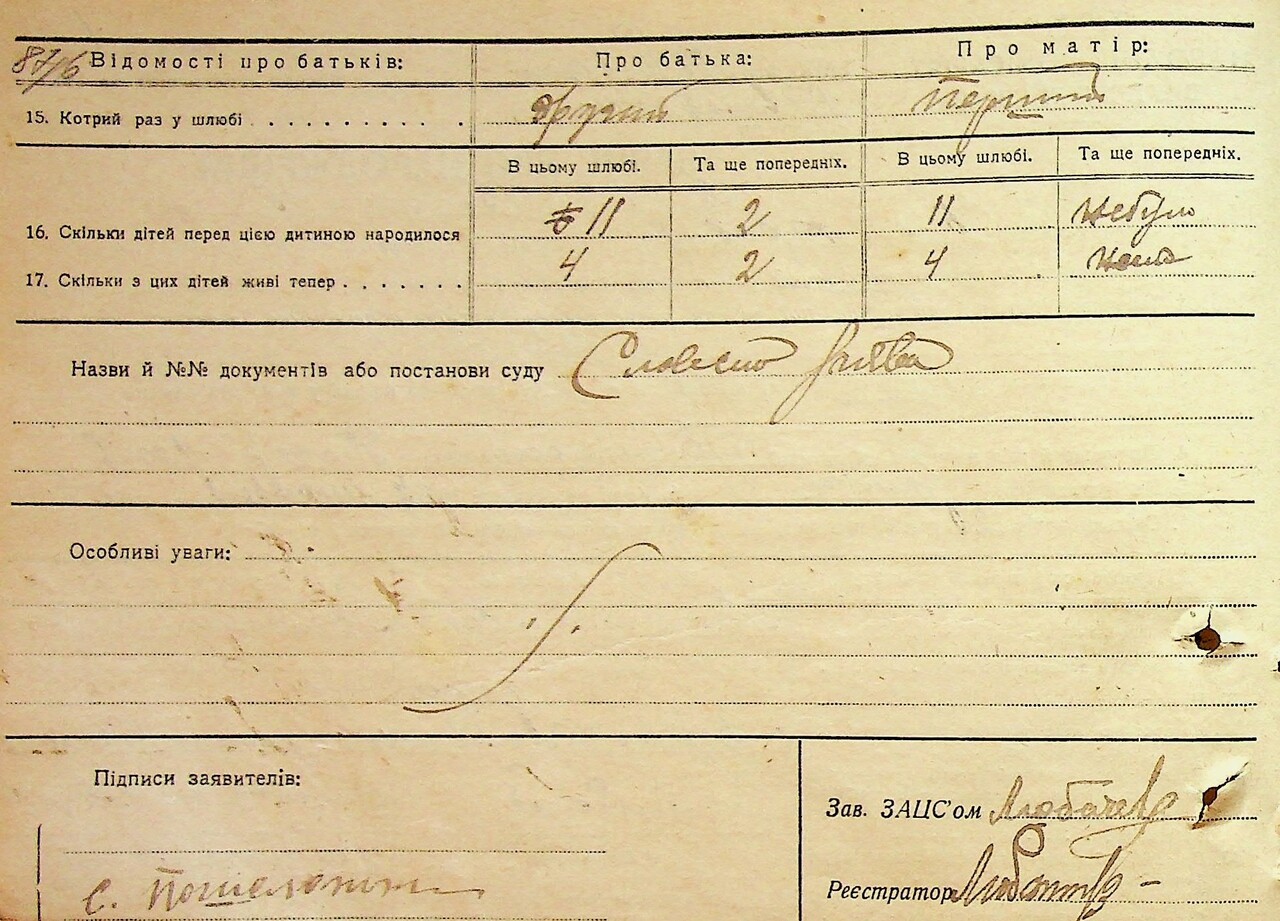 87/6 Відомості про батьків: Про батька: Про матір:
15. Котрий раз у шлюбі . . . . . . . . . . другий перший
В цьому шлюбі. Та ще попередніх. В цьому шлюбі. Та ще попередніх.
16. Скільки дітей перед цією дитиною народилося 11 2 11 небуло
17. Скільки з цих дітей живі тепер . . . . . . . 4 2 4 нема
Назви й №№ документів або постанови суду Словесно заява
Особливі уваги:
Підписи заявителів:
Зав. ЗАЦС'ом
С.
Реєстратор